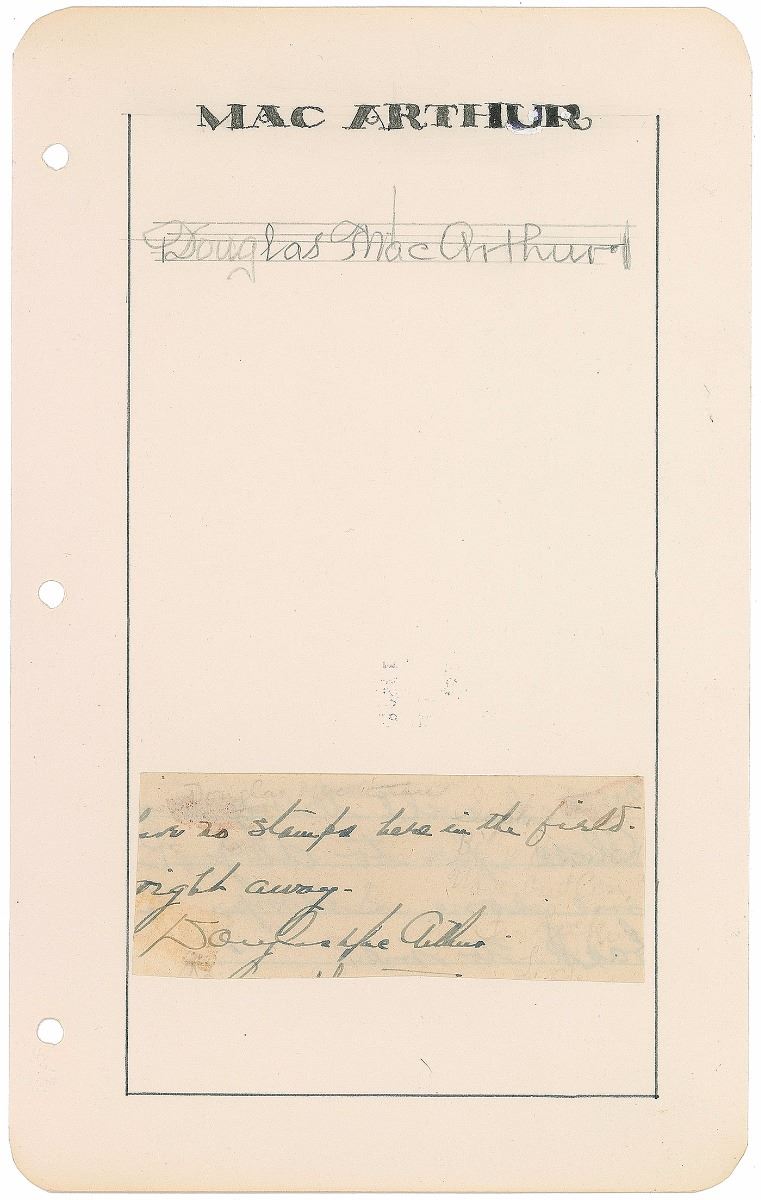 MAC ARTHUR
Douglas Mac Arthur
no stamps here in the field.
right away-
Douglas MacArthur